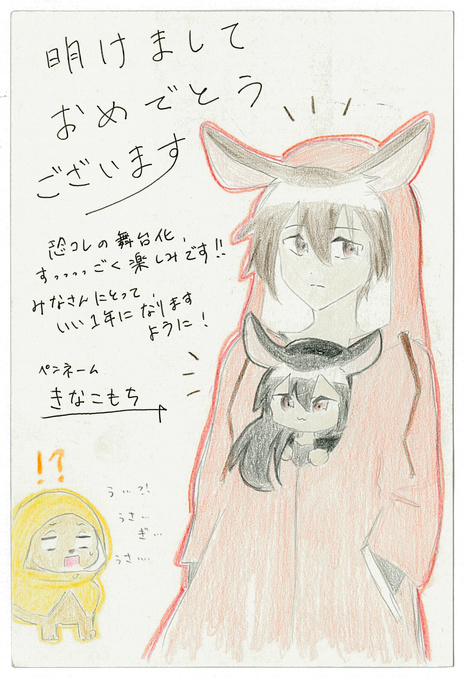 明けまして
おめでとう
ございます
恐コレの舞台化、
すっっっっごく楽しみです!!
みなさんにとって、
いい1年になります
ように!
ペンネーム
きなこもち
!?
うぃ?!
うさー
ぎぃ…
うさ…